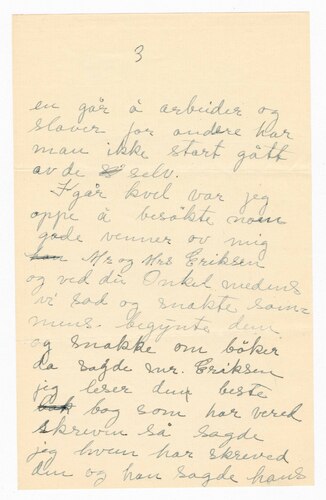 3
en går å arbeider og
slaver for andere har
man ikke stort gått
av de selv.
I går kvel var jeg
oppe å besökte noen
gode venner ov mig
Mr og Mrs Eriksen
og ved du Onkel medens
vi sad og snakte sam-
mens. begÿnte dem
og snakke om böker
da sagde mr. Eriksen
jeg leser den beste
bog som har vered
skreven så sagde
jeg hvem har skreved
den og han sagde hans